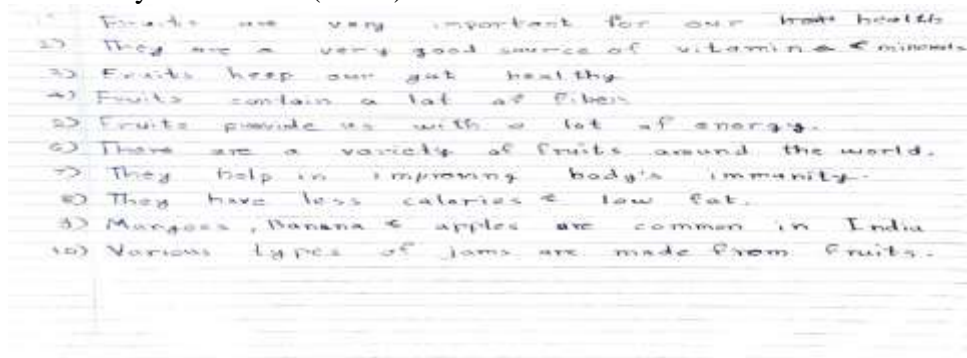 1) Fruits are very important for our health
2) They are a very good source of vitamins & minerals
3) Fruits keep our gut healthy
4) Fruits contain a lot of fiber
5) Fruits provide us with a lot of energy.
6) There are a variety of fruits around the world.
7) They help in improving body's immunity.
8) They have less calories & low fat.
9) Mangoes, Banana & apples are common in India
10) Various types of jams are made from fruits.